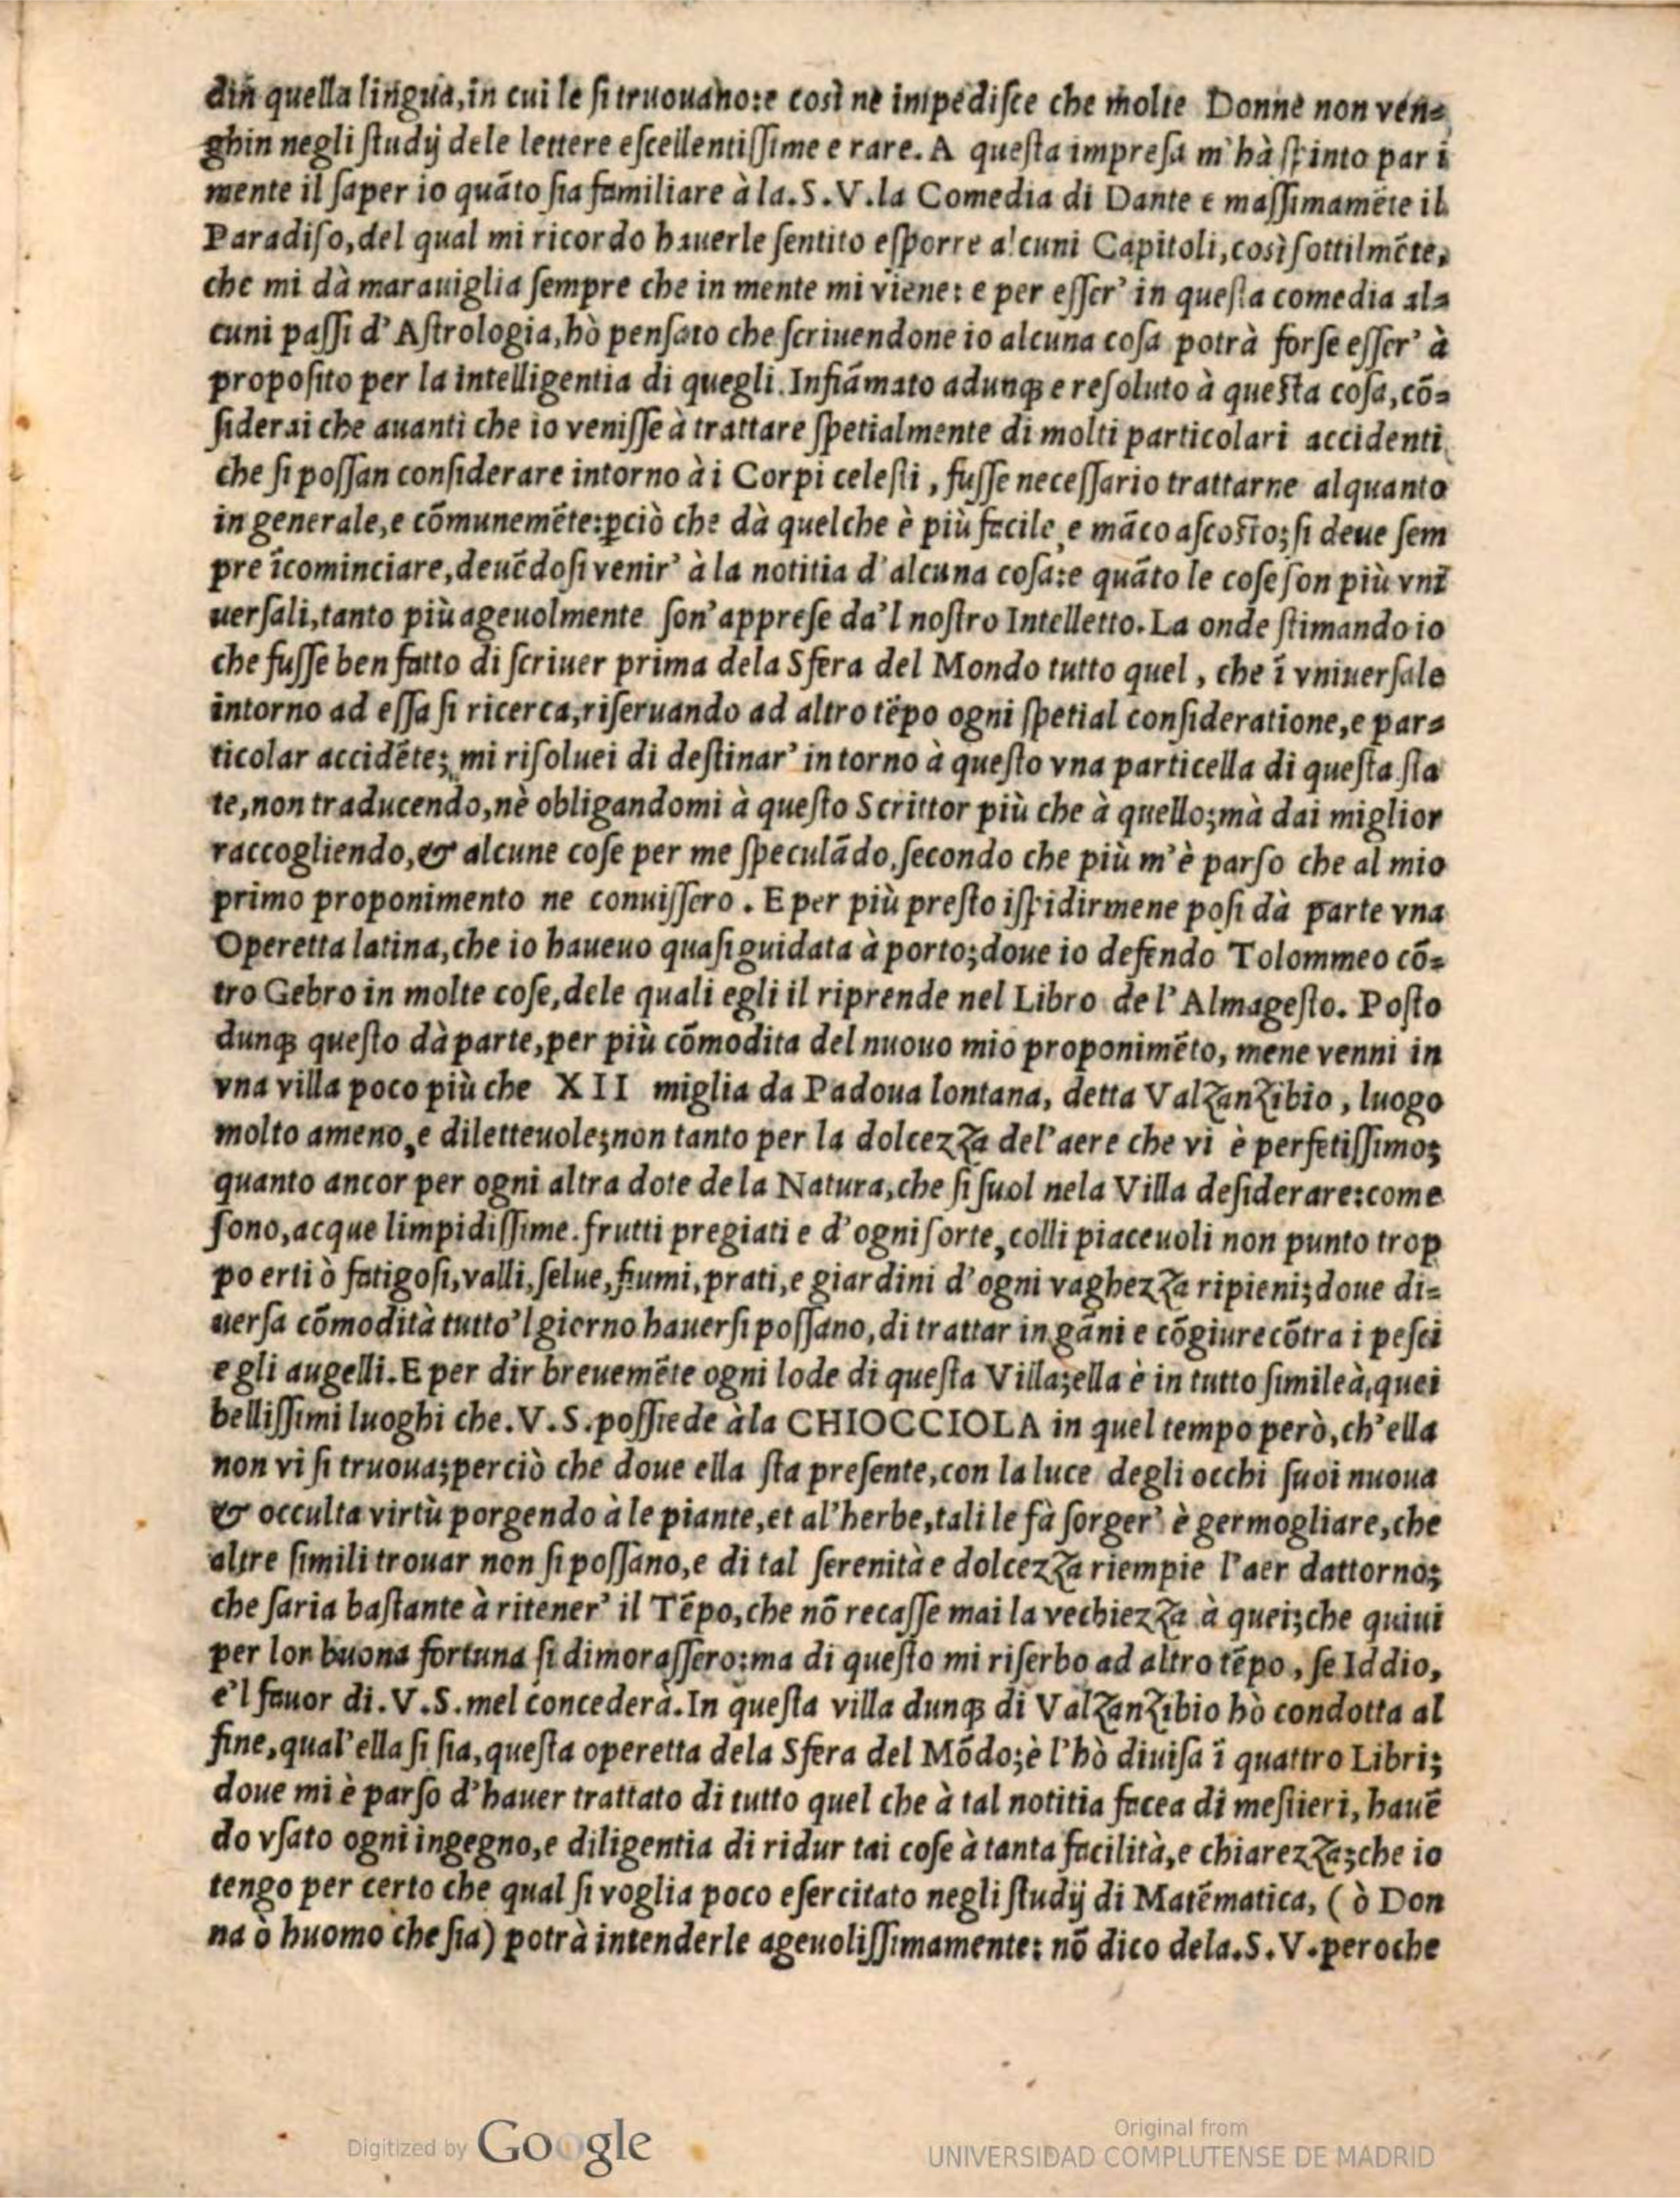 din quella lingua, in cui le si truouano: e così ne impedisce che molte Donne non ven=
ghin negli studij dele lettere escellentissime e rare. A questa impresa m'hà spinto par i
mente il saper io quãto sia familiare à la. S. V. la Comedia di Dante e massimamẽte il
Paradiso, del qual mi ricordo hauerle sentito esporre alcuni Capitoli, così sottilmẽte,
che mi dà marauiglia sempre che in mente mi viene: e per esser' in questa comedia al=
cuni passi d' Astrologia, hò pensato che scriuendone io alcuna cosa potrà forse esser' à
proposito per la intelligentia di quegli. Infiãmato adunqꝫ e resoluto à questa cosa, cõ=
siderai che auanti che io venisse à trattare spetialmente di molti particolari accidenti
che si possan considerare intorno à i Corpi celesti, fusse necessario trattarne alquanto
in generale, e cõmunemẽte: ꝑciò che dà quelche è più facile, e mãco ascosto; si deue sem
pre ĩcominciare, deuẽdosi venir' à la notitia d'alcuna cosa: e quãto le cose son più vni
uersali, tanto più ageuolmente son' apprese da'l nostro Intelletto. La onde stimando io
che fusse ben fatto di scriuer prima dela Sfera del Mondo tutto quel, che ĩ vniuersale
intorno ad essa si ricerca, riseruando ad altro tẽpo ogni spetial consideratione, e par=
ticolar accidẽte; mi risoluei di destinar' intorno à questo vna particella di questa sta
te, non traducendo, nè obligandomi à questo Scrittor più che à quello; mà dai miglior
raccogliendo, & alcune cose per me speculãdo, secondo che più m'è parso che al mio
primo proponimento ne conuissero. E per più presto ispidirmene posi dà parte vna
Operetta latina, che io haueuo quasi guidata à porto; doue io defendo Tolommeo cõ=
tro Gebro in molte cose, dele quali egli il riprende nel Libro de l' Almagesto. Posto
dunqꝫ questo dà parte, per più cõmodita del nuouo mio proponimẽto, mene venni in
vna villa poco più che XII miglia da Padoua lontana, detta Valzanzibio, luogo
molto ameno, e diletteuole; non tanto per la dolcezza del'aere che vi è perfetissimo;
quanto ancor per ogni altra dote de la Natura, che si suol nela Villa desiderare: come
sono, acque limpidissime. frutti pregiati e d'ogni sorte, colli piaceuoli non punto trop
po erti ò fatigosi, valli, selue, fiumi, prati, e giardini d'ogni vaghezza ripieni; doue di=
uersa cõmodità tutto'l giorno hauersi possano, di trattar ingãni e cõgiure cõtra i pesci
e gli augelli. E per dir breuemẽte ogni lode di questa Villa; ella è in tutto simile à, quei
bellissimi luoghi che. V. S. possiede àla CHIOCCIOLA in quel tempo però, ch'ella
non vi si truoua; perciò che doue ella sta presente, con la luce degli occhi suoi nuoua
& occulta virtù porgendo à le piante, et al'herbe, tali le fà sorger' è germogliare, che
altre simili trouar non si possano, e di tal serenità e dolcezza riempie l'aer dattorno;
che saria bastante à ritener' il Tẽpo, che nõ recasse mai la vechiezza à quei; che quiui
per lor buona fortuna si dimorassero: ma di questo mi riserbo ad altro tẽpo, se Iddio,
e'l fauor di. V. S. mel concederà. In questa villa dunqꝫ di Valzanzibio hò condotta al
fine, qual'ella si sia, questa operetta dela Sfera del Mõdo; è l'hò diuisa ĩ quattro Libri;
doue mi è parso d'hauer trattato di tutto quel che à tal notitia facea di mestieri, hauẽ
do vsato ogni ingegno, e diligentia di ridur tai cose à tanta facilità, e chiarezza; che io
tengo per certo che qual si voglia poco esercitato negli studij di Matẽmatica, ( ò Don
na ò huomo che sia) potrà intenderle ageuolissimamente: nõ dico dela. S. V. peroche
Digitized by Google
Original from
UNIVERSIDAD COMPLUTENSE DE MADRID